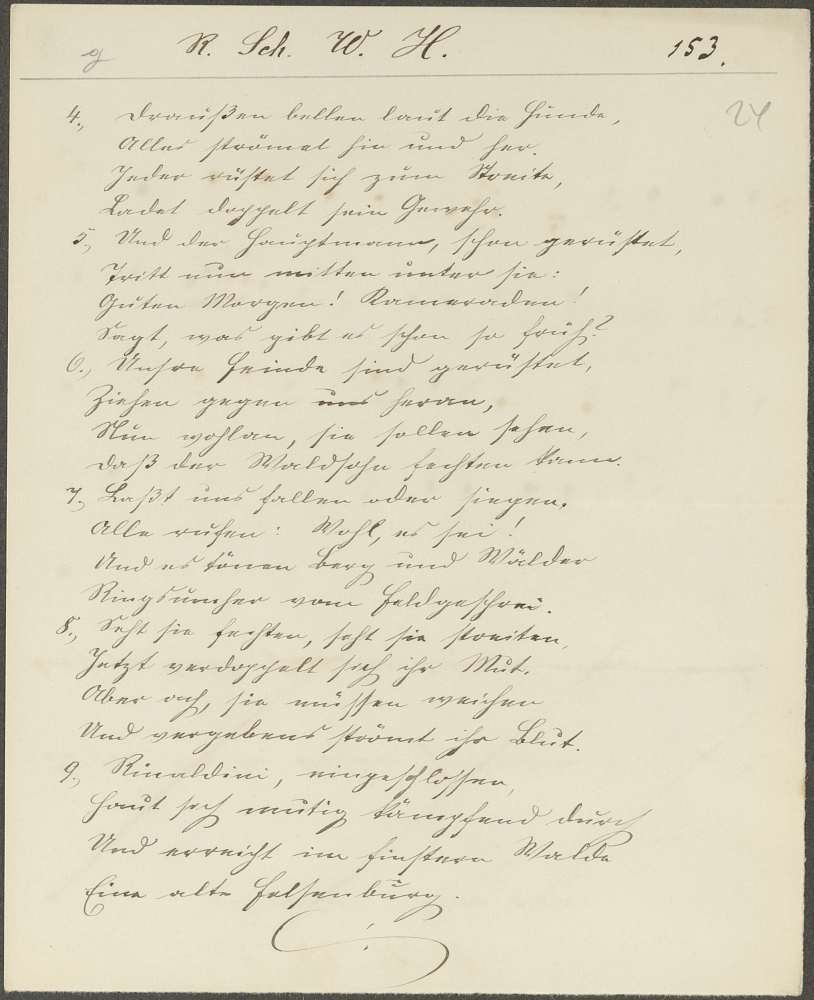 g R. Sch. W. H. 153.
24
4., Draußen bellen laut die Hunde,
Alles strömet hin und her.
Jeder rüstet sich zum Streite,
Ladet doppelt sein Gewehr.
5., Und der Hauptmann, schon gerüstet,
Tritt nun mitten unter sie:
Guten Morgen! Kameraden!
Sagt, was gibt es schon so früh?
6., Unsre Feinde sind gerüstet,
Ziehen gegen uns heran,
Nun wohlan, sie sollen sehen,
Daß der Waldsohn fechten kann.
7., Laßt uns fallen oder siegen.
Alle rufen: Wohl, es sei!
Und es tönen Berg und Wälder
Ringsumher vom Feldgeschrei.
8., Seht sie fechten, seht sie streiten,
Jetzt verdoppelt sich ihr Mut.
Aber ach, sie müssen weichen
Und vergebens strömt ihr Blut.
9., Rinaldini, eingeschlossen,
Haut sich mutig kämpfend durch
Und erreicht im finstern Walde
Eine alte Felsenburg.